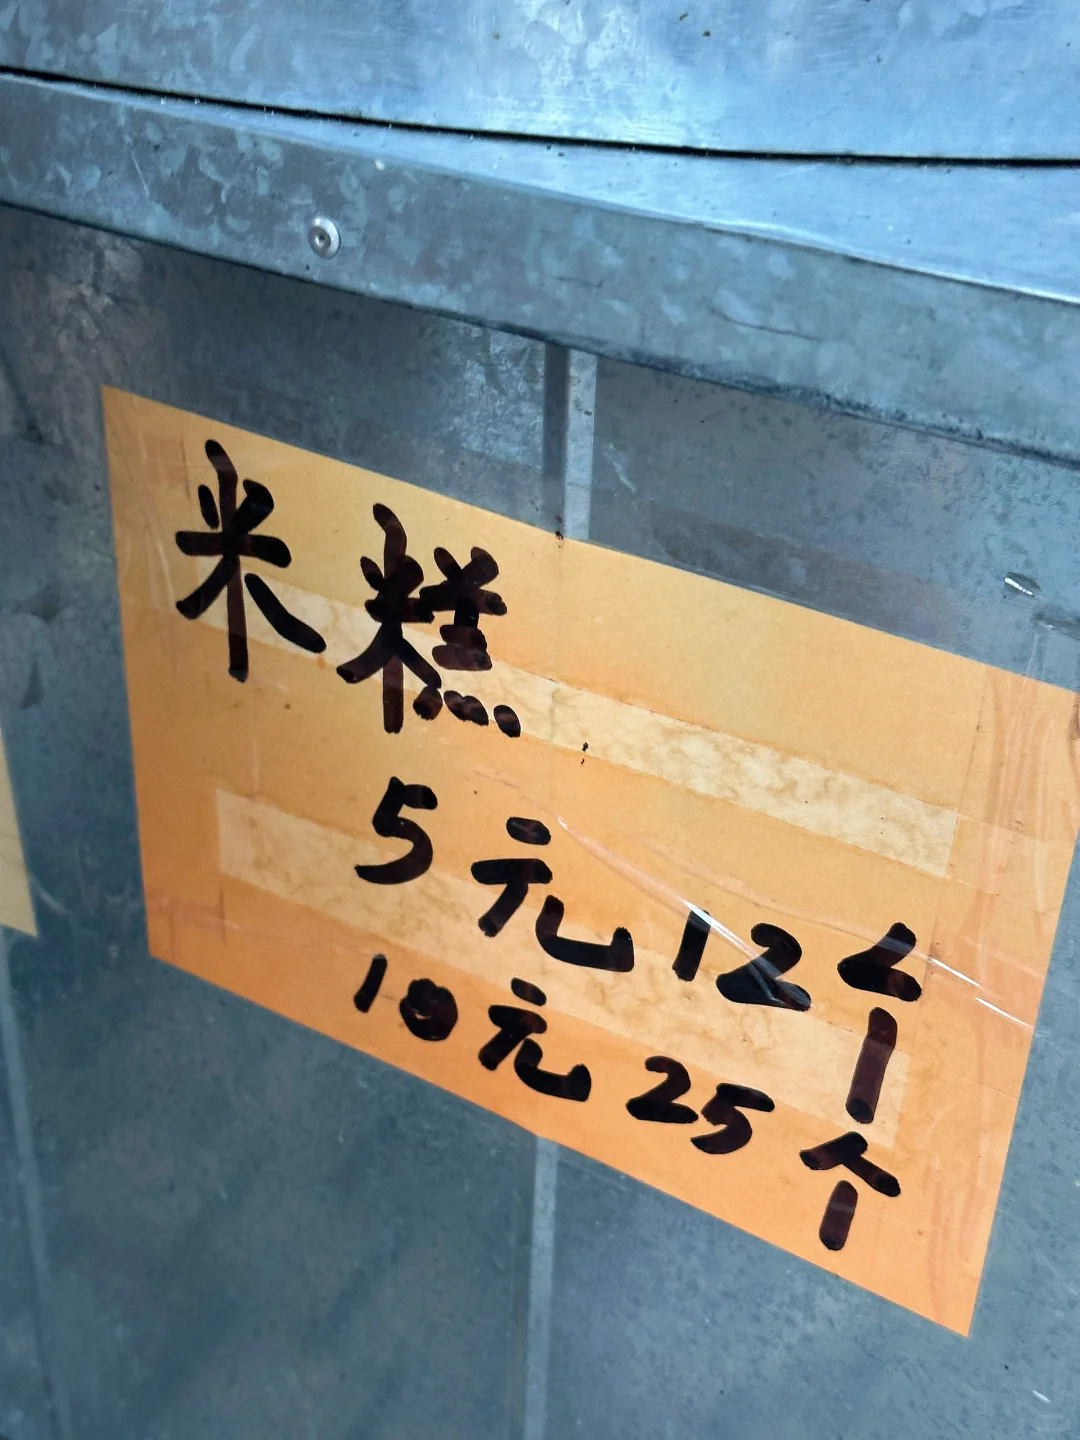 米糕
5元12个
10元25个